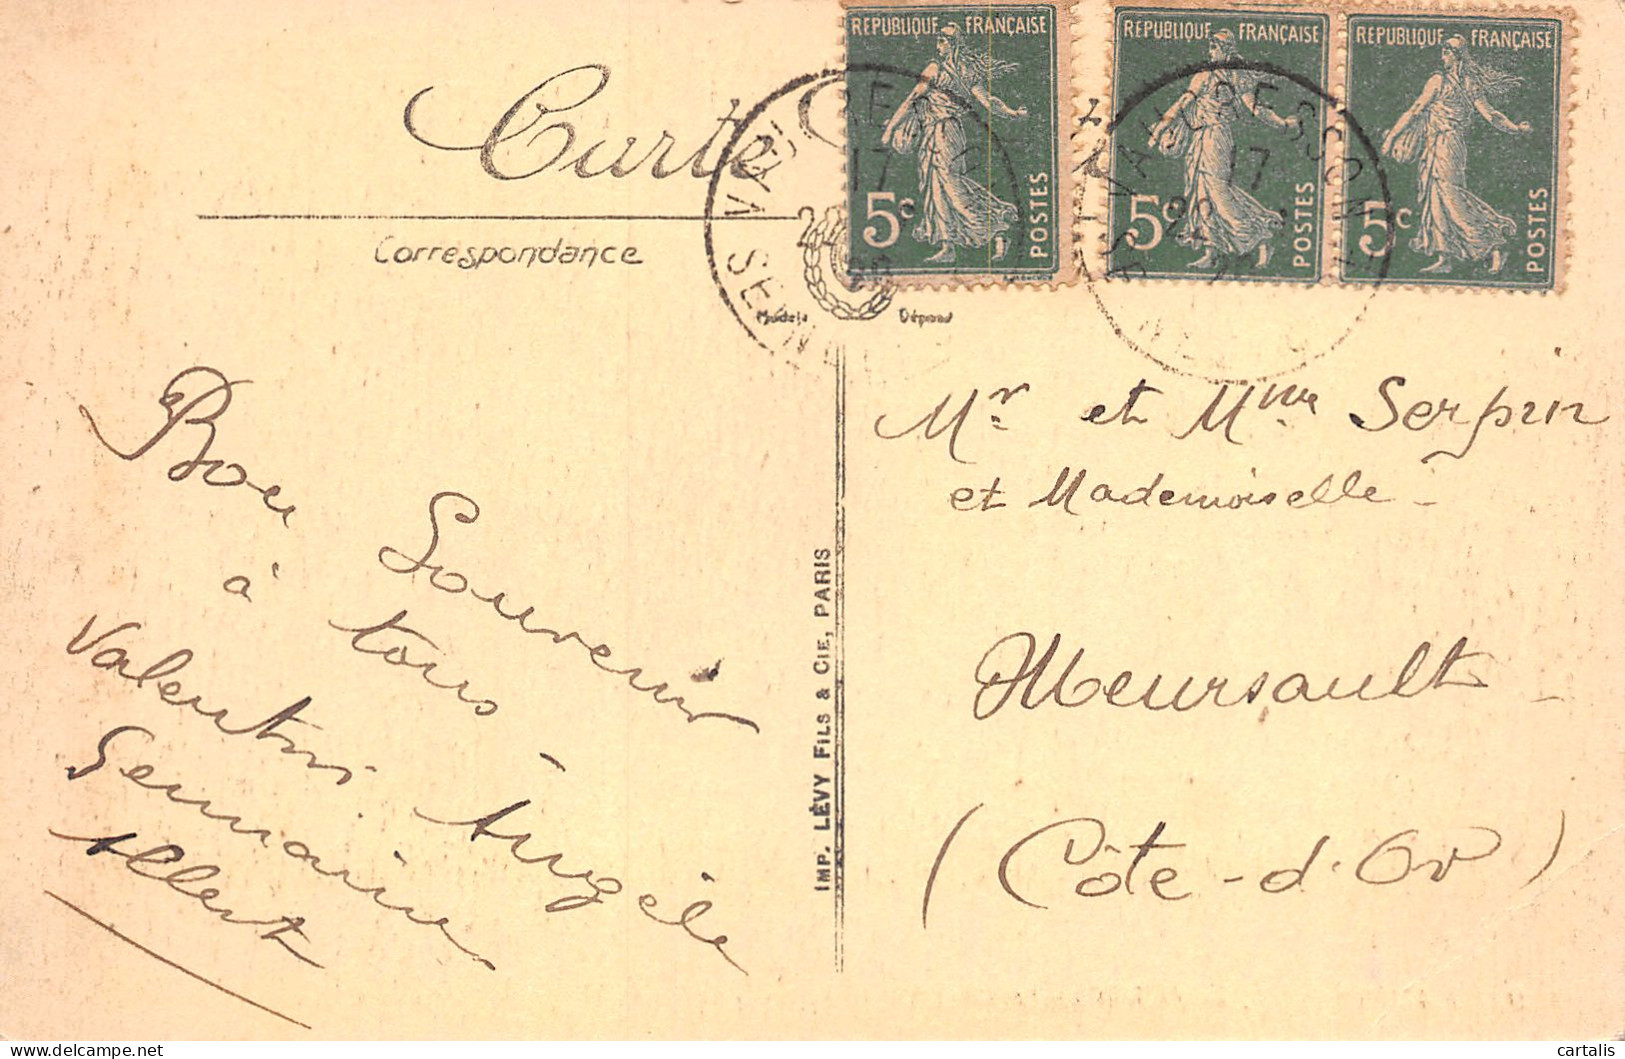 RÉPUBLIQUE FRANÇAISE
5c
POSTES
RÉPUBLIQUE FRANÇAISE
5c
POSTES
RÉPUBLIQUE FRANÇAISE
5c
POSTES
VAUCRESSON
17
VAUCRESSON
17
Carte
Correspondance
Modèle Déposé
Bon Souvenir
à tous
Valentin. Angèle
Germaine
Albert
IMP. LÉVY FILS & CIE, PARIS
Mr et Mme Serpin
et Mademoiselle -
Meursault -
(Côte-d'Or)
cartalis